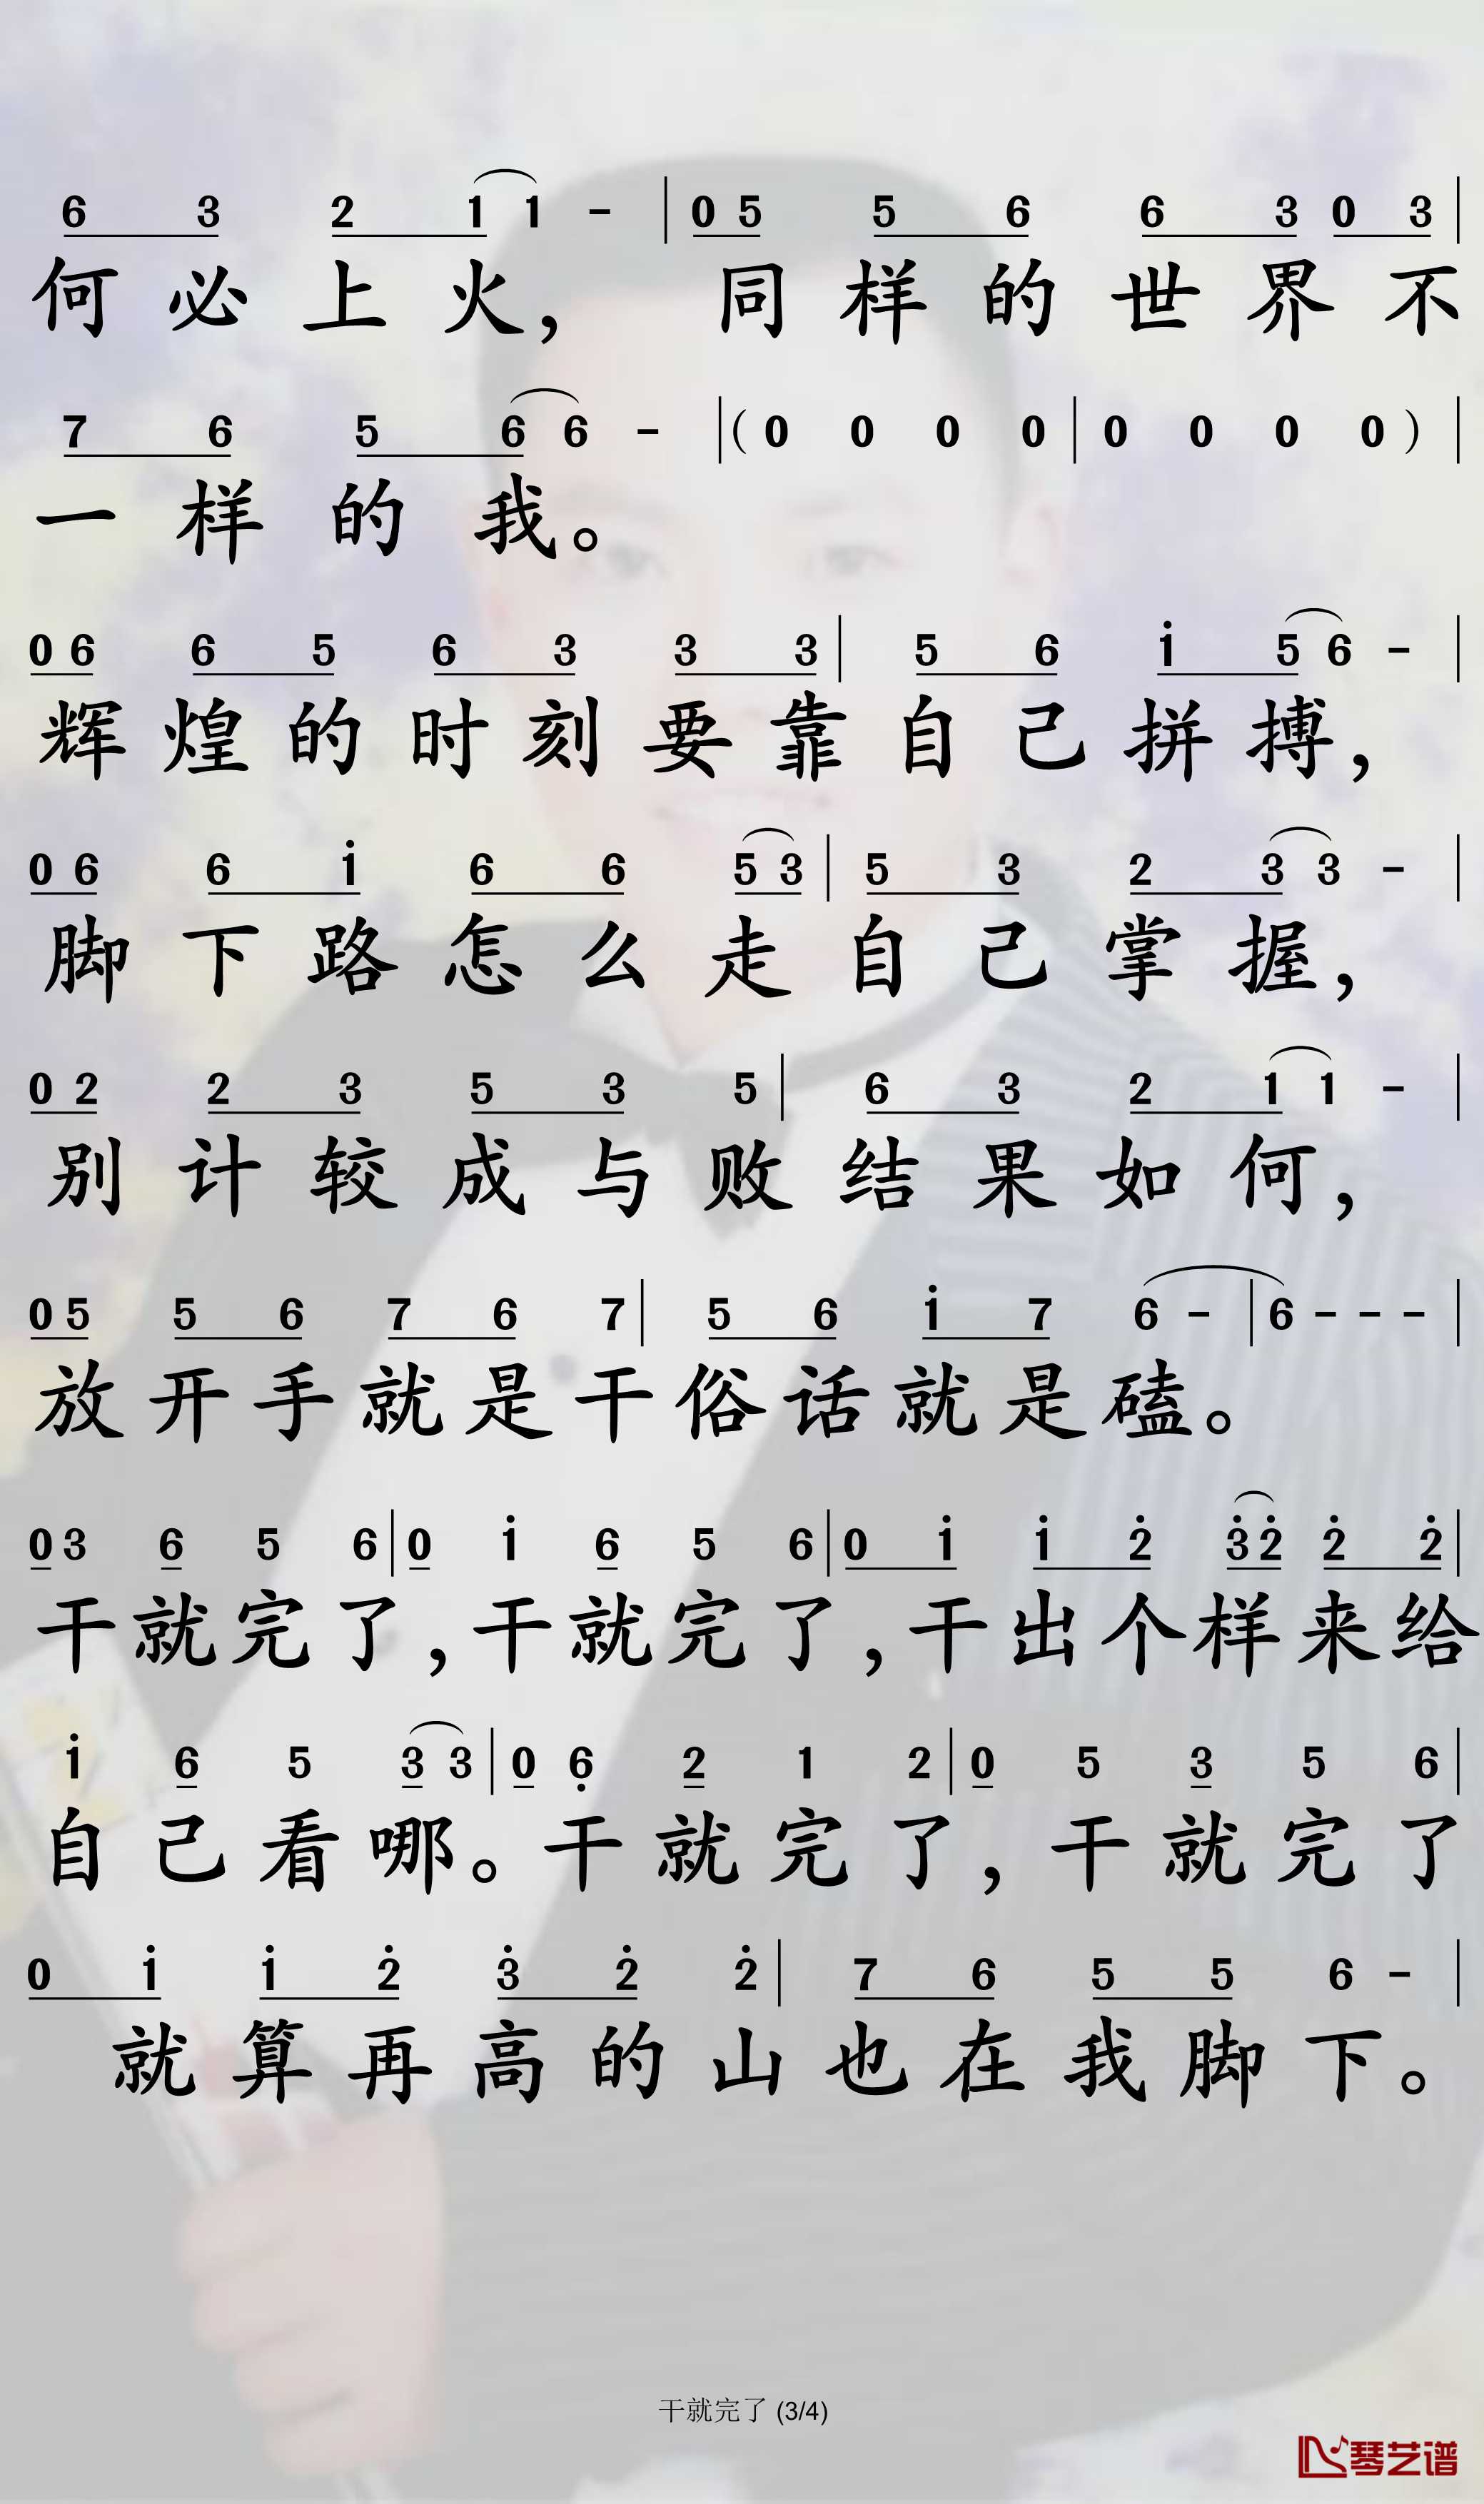 6 3 2 1 1 - | 0 5 5 6 6 3 0 3 |
何必上火，同样的世界不
7 6 5 6 6 - | (0 0 0 0 | 0 0 0 0) |
一样的我。
0 6 6 5 6 3 3 3 | 5 6 i 5 6 - |
辉煌的时刻要靠自己拼搏，
0 6 6 i 6 6 5 3 | 5 3 2 3 3 - |
脚下路怎么走自己掌握，
0 2 2 3 5 3 5 | 6 3 2 1 1 - |
别计较成与败结果如何，
0 5 5 6 7 6 7 | 5 6 i 7 6 - | 6 - - - |
放开手就是干俗话就是磕。
0 3 6 5 6 | 0 i 6 5 6 | 0 i i 2̇ 3̇ 2̇ 2̇ 2̇ |
干就完了，干就完了，干出个样来给
i 6 5 3 3 | 0 6̣ 2 1 2 | 0 5 3 5 6 |
自己看哪。干就完了，干就完了
0 i i 2̇ 3̇ 2̇ 2̇ | 7 6 5 5 6 - |
就算再高的山也在我脚下。
干就完了 (3/4)
琴艺谱